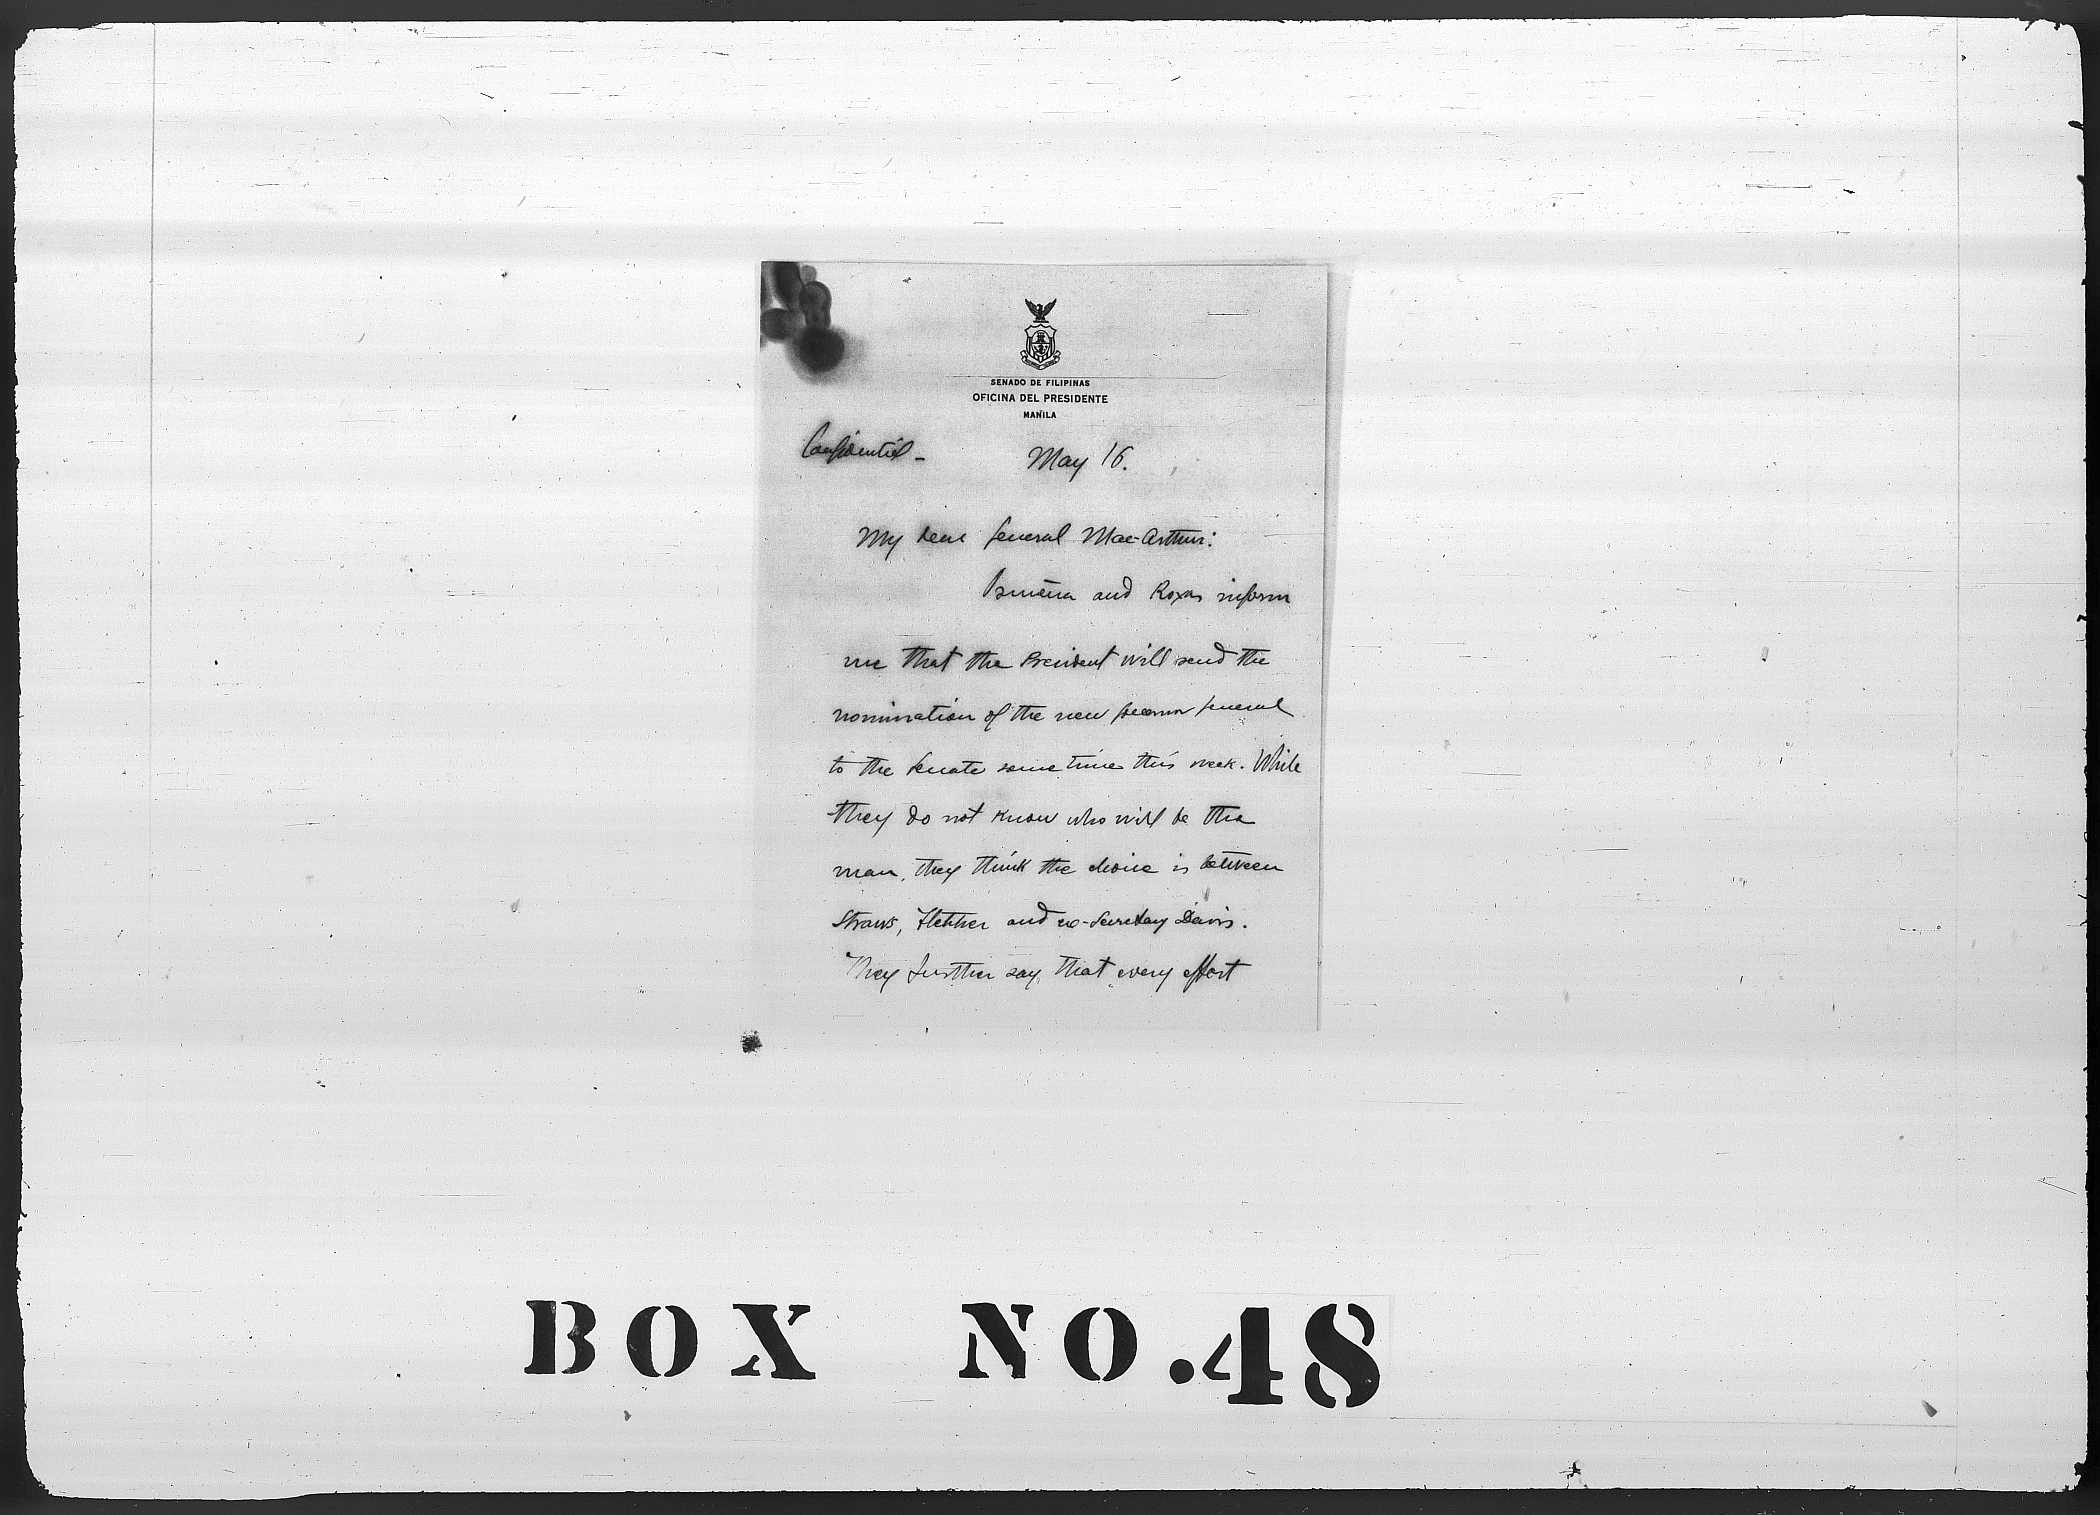 SENADO DE FILIPINAS
OFICINA DEL PRESIDENTE
MANILA
Confidential - May 16.
My dear General Mac-Arthur:
Osmeña and Roxas inform
me that the President will send the
nomination of the new Governor General
to the Senate some time this week. While
they do not know who will be the
man, they think the choice is between
Straws, Fletcher and ex-Secretary Davis.
They further say, that every effort
BOX NO.48